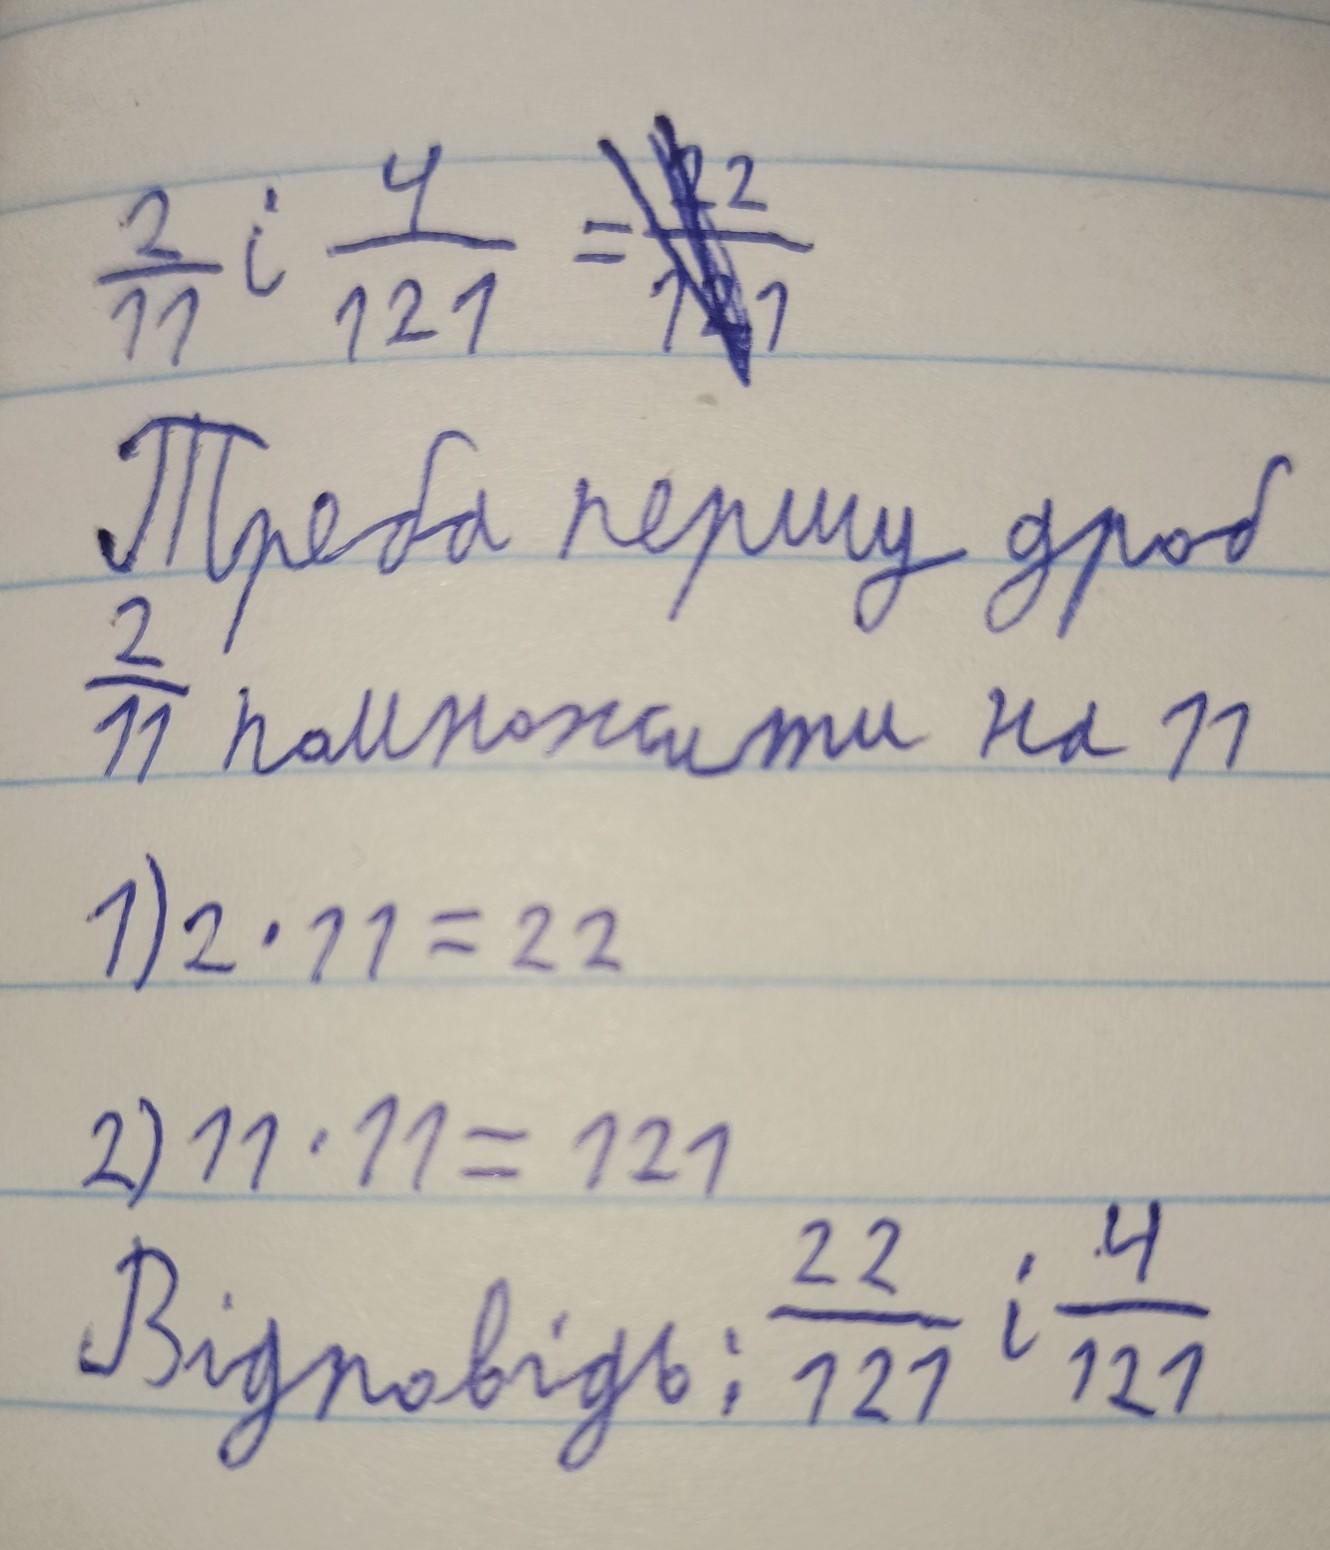 2/11 і 4/121 = 22/121
Треба першу дроб
2/11 помножити на 11
1) 2 · 11 = 22
2) 11 · 11 = 121
Відповідь: 22/121 і 4/121